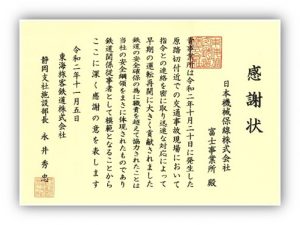 感謝状
日本機械保線株式会社
富士事業所 殿
貴事業所は令和二年十月二十日に発生した
原踏切付近での交通事故現場において
指令との連絡を密に取り迅速な対応によって
早期の運転再開に大きく貢献されました
鉄道の安全確保の為に職責を超えて協力されたことは
当社の安全綱領をまさに体現されたものであり
鉄道関係従事者として模範となることから
ここに深く感謝の意を表します
令和二年十一月五日
東海旅客鉄道株式会社
静岡支社施設部長 永井秀忠